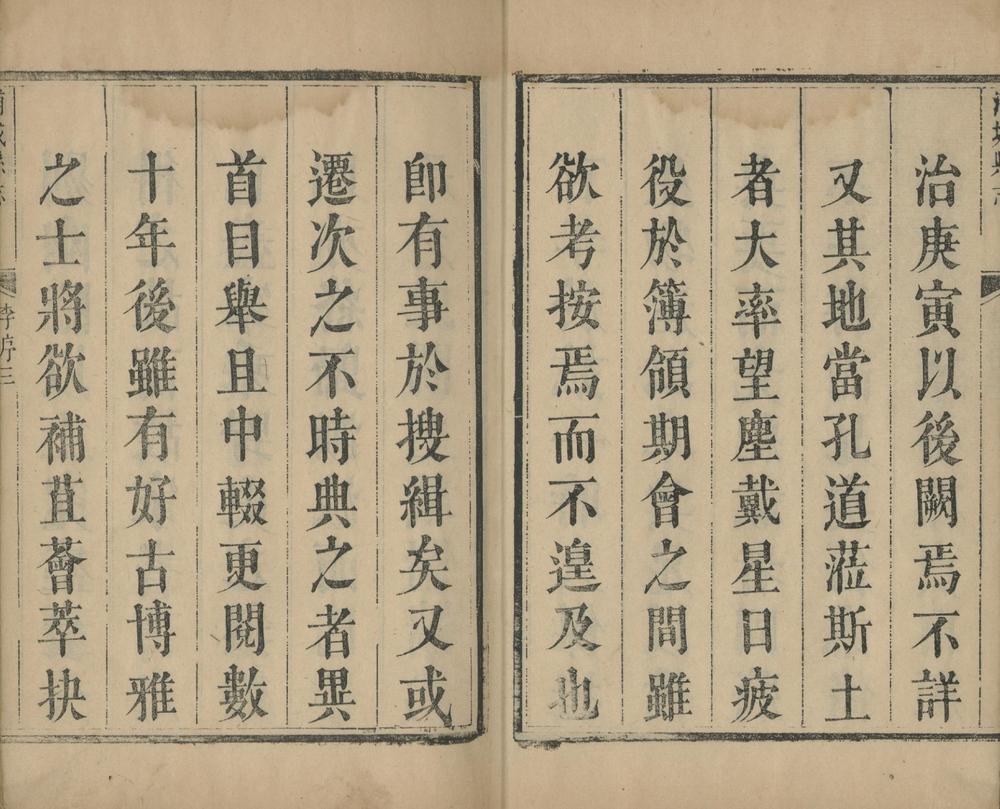 治庚寅以後闕焉不詳
又其地當孔道蒞斯土
者大率望塵戴星日疲
役於簿領期會之間雖
欲考按焉而不遑及也
卽有事於搜緝矣又或
遷次之不時典之者異
首目舉且中輟更閱數
十年後雖有好古博雅
之士將欲補苴薈萃抉
李序三